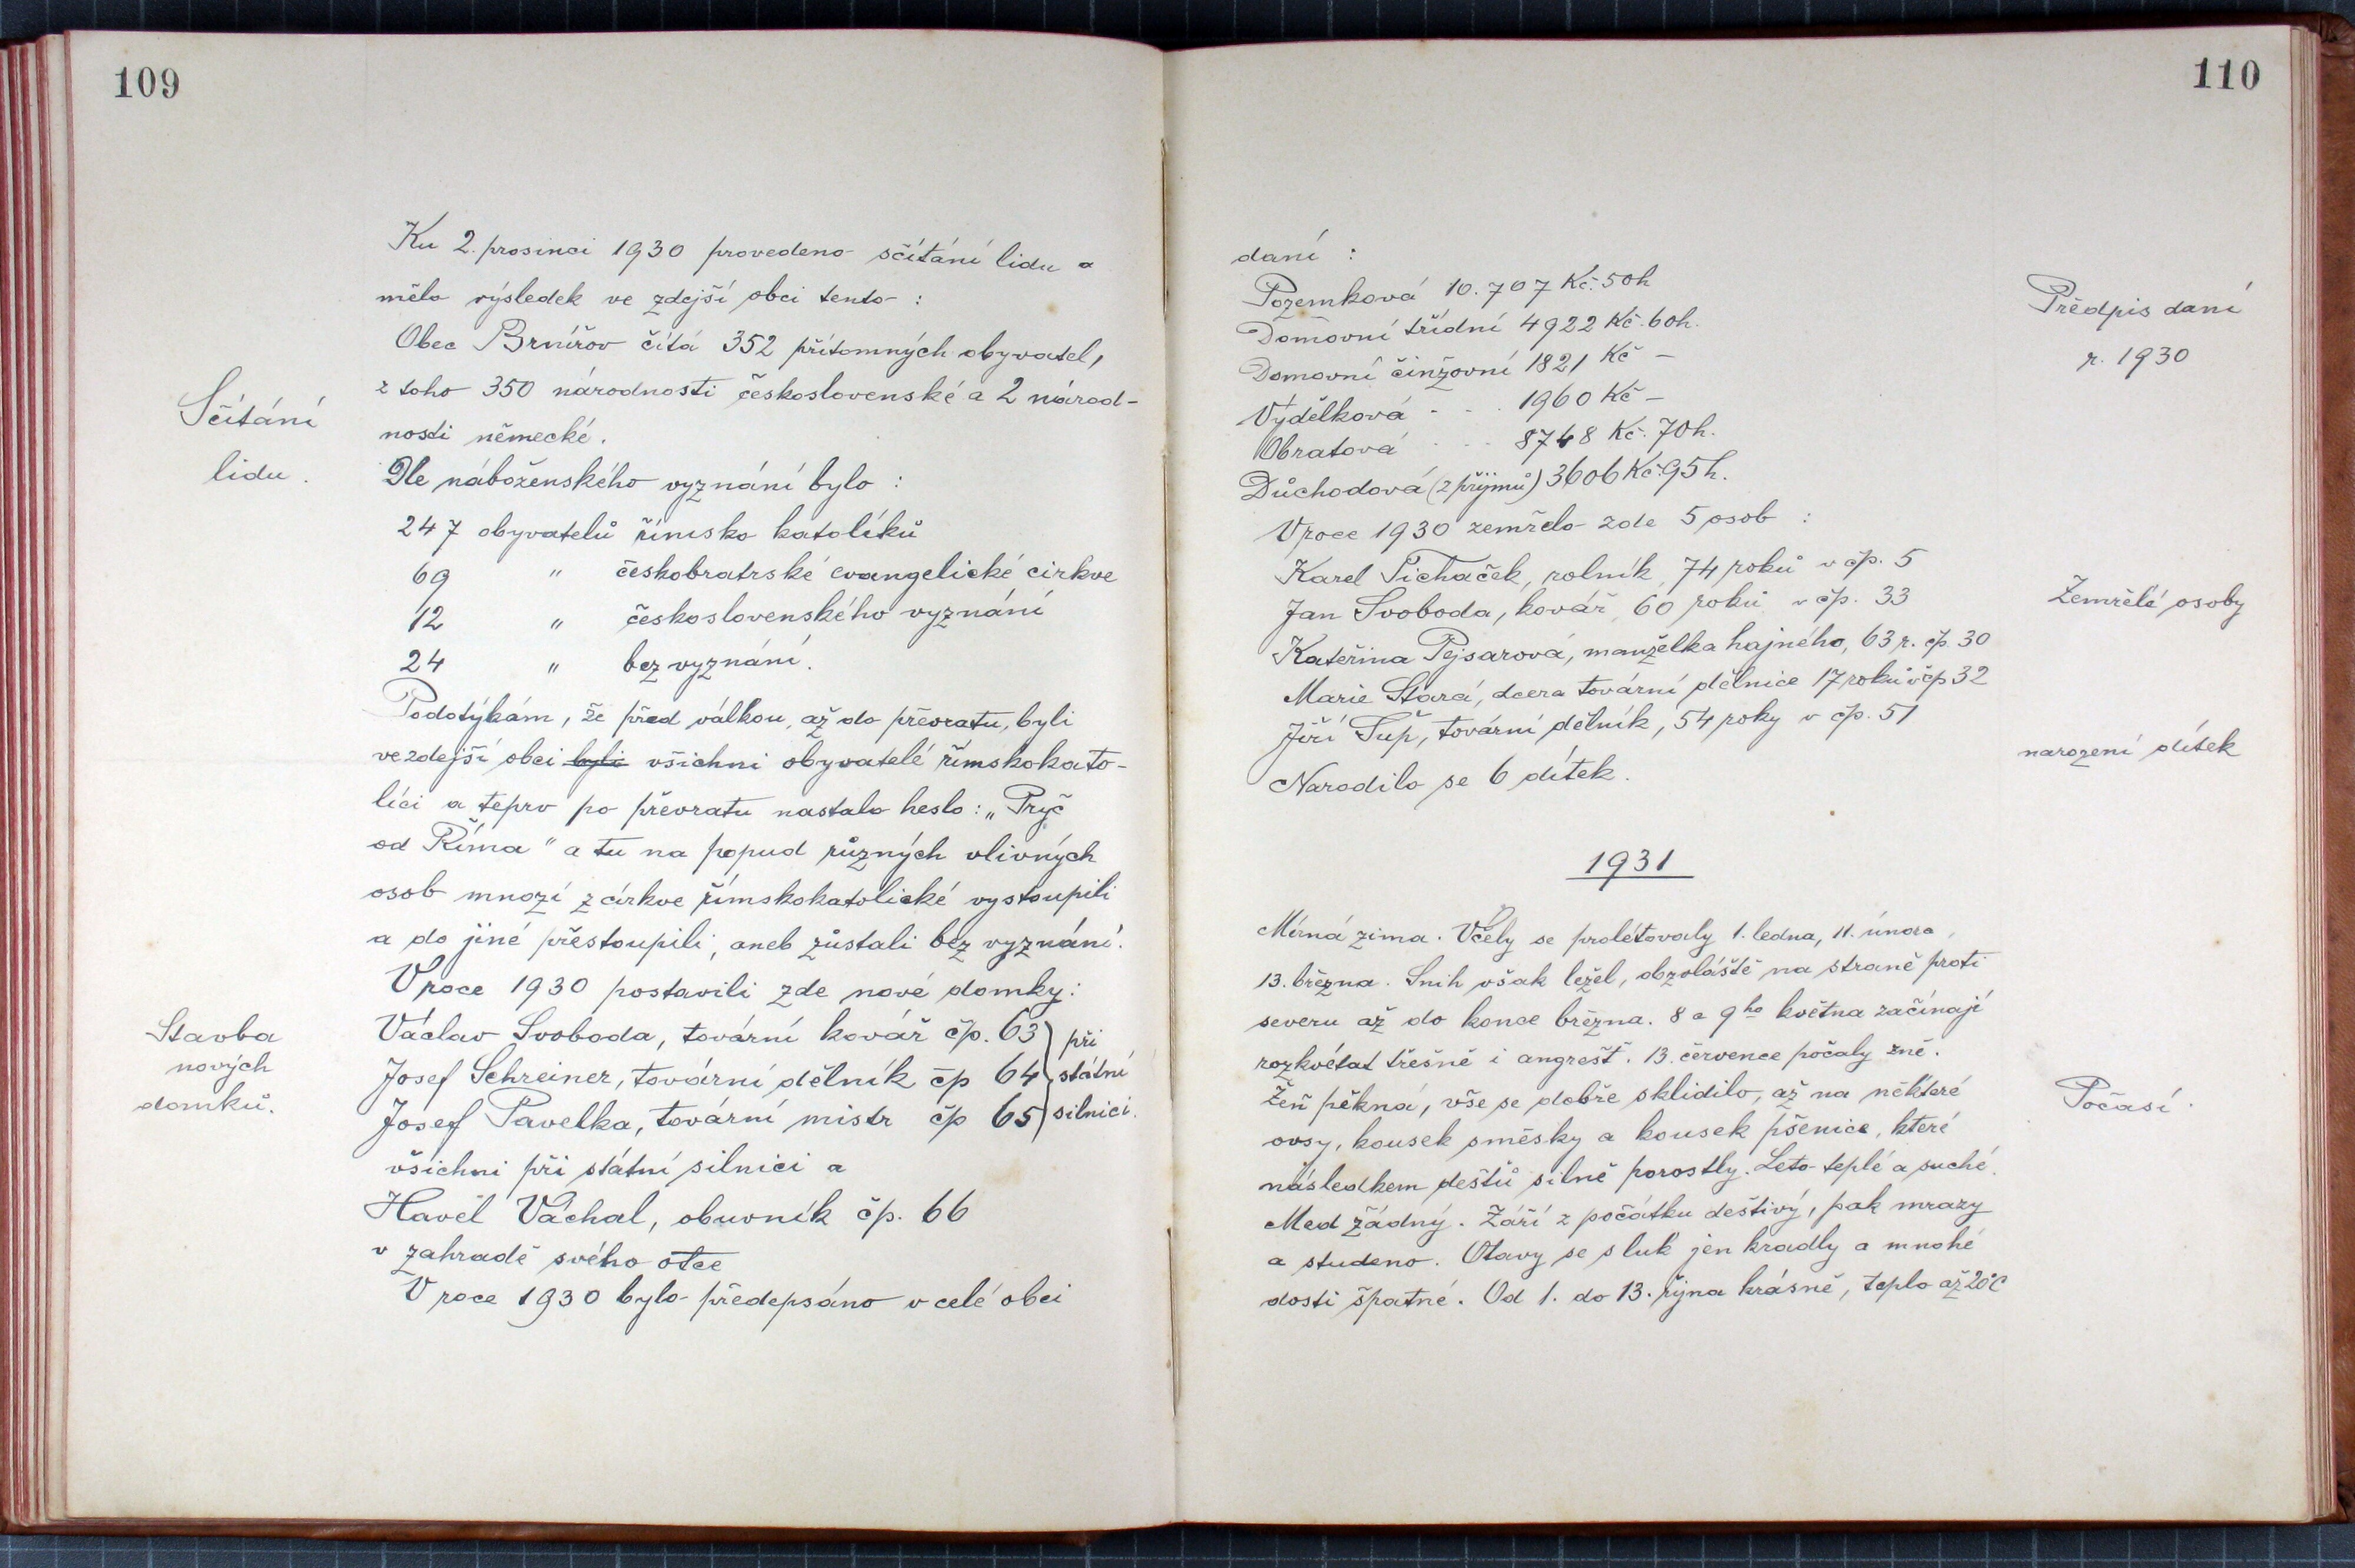 109
Ku 2. prosinci 1930 provedeno sčítání lidu a
mělo výsledek ve zdejší obci tento:
Obec Brnířov čítá 352 přítomných obyvatel,
z toho 350 národnosti československé a 2 národ-
nosti německé.
Sčítání
lidu.
Dle náboženského vyznání bylo:
247 obyvatelů římsko katolíků
69 " českobratrské evangelické cirkve
12 " československého vyznání
24 " bez vyznání.
Podotýkám, že před válkou, až do převratu, byli
ve zdejší obci byli všichni obyvatelé římskokato-
líci a teprv po převratu nastalo heslo: „Pryč
od Říma" a tu na popud různých vlivných
osob mnozí z církve římskokatolické vystoupili
a do jiné přestoupili, aneb zůstali bez vyznání.
V roce 1930 postavili zde nové domky:
Stavba
nových
domků.
Václav Svoboda, tovární kovář čp. 63 ) při
Josef Schreiner, tovární dělník čp 64 ) státní
Josef Pavelka, tovární mistr čp 65 ) silnici.
všichni při státní silnici a
Havel Váchal, obuvník čp. 66
v zahradě svého otce
V roce 1930 bylo předepsáno v celé obci
110
daní:
Pozemková 10.707 Kč. 50h
Domovní třídní 4922 Kč. 60h.
Domovní činžovní 1821 Kč –
Výdělková - - . 1960 Kč –
Obratová - - - 8748 Kč. 70h.
Důchodová (z příjmů) 3606 Kč 95h.
Předpis daní
r. 1930
V roce 1930 zemřelo zde 5 osob:
Karel Pichaček, rolník, 74 roků v čp. 5
Jan Svoboda, kovář, 60 roků v čp. 33
Kateřina Pejsarová, manželka hajného, 63 r. čp. 30
Marie Stará, dcera tovární dělnice 17 roků v čp 32
Jiří Šup, tovární dělník, 54 roky v čp. 51
Zemřelé osoby
Narodilo se 6 dítek.
narození dítek
1931
Mírná zima. Včely se prolétovaly 1. ledna, 11. února,
13. března. Snih však ležel, obzvláště na straně proti
severu až do konce března. 8 a 9ho května začínají
rozkvétat třešně i angrešt. 13. července počaly žně.
Žeň pěkná, vše se dobře sklidilo, až na některé
ovsy, kousek směsky a kousek pšenice, které
následkem dešťů silně porostly. Léto teplé a suché.
Med žádný. Září z počátku deštivý, pak mrazy
a studeno. Otavy se s luk jen kradly a mnohé
dosti špatné. Od 1. do 13. října krásně, teplo až 20°C
Počasí.